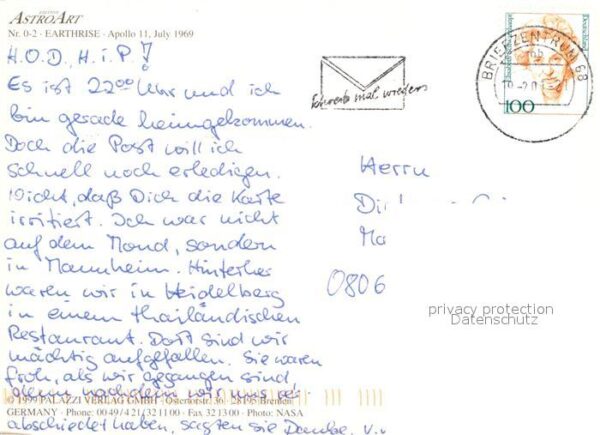 EDITION
ASTROART
Nr. 0-2 · EARTHRISE · Apollo 11, July 1969
H.O.D., H.i.P.!
Es ist 22⁰⁰ Uhr und ich
bin gerade heimgekommen.
Doch die Post will ich
schnell noch erledigen.
Nicht, daß Dich die Karte
irritiert. Ich war nicht
auf dem Mond, sondern
in Mannheim. Hinterher
waren wir in Heidelberg
in einem thailändischen
Restaurant. Dort sind wir
mächtig aufgefallen. Sie waren
froh, als wir gegangen sind,
denn nachdem wir uns ver-
© 1999 PALAZZI VERLAG GMBH · Osterdeich 36 · 28195 Bremen
GERMANY · Phone: 00 49/4 21/32 11 00 · Fax 32 13 00 · Photo: NASA
abschiedet haben, sagten sie Danke. V.v
Schreib mal wieder
BRIEFZENTRUM 68
Deutschland
100
Herrn
Di
Ma
0806
privacy protection
Datenschutz